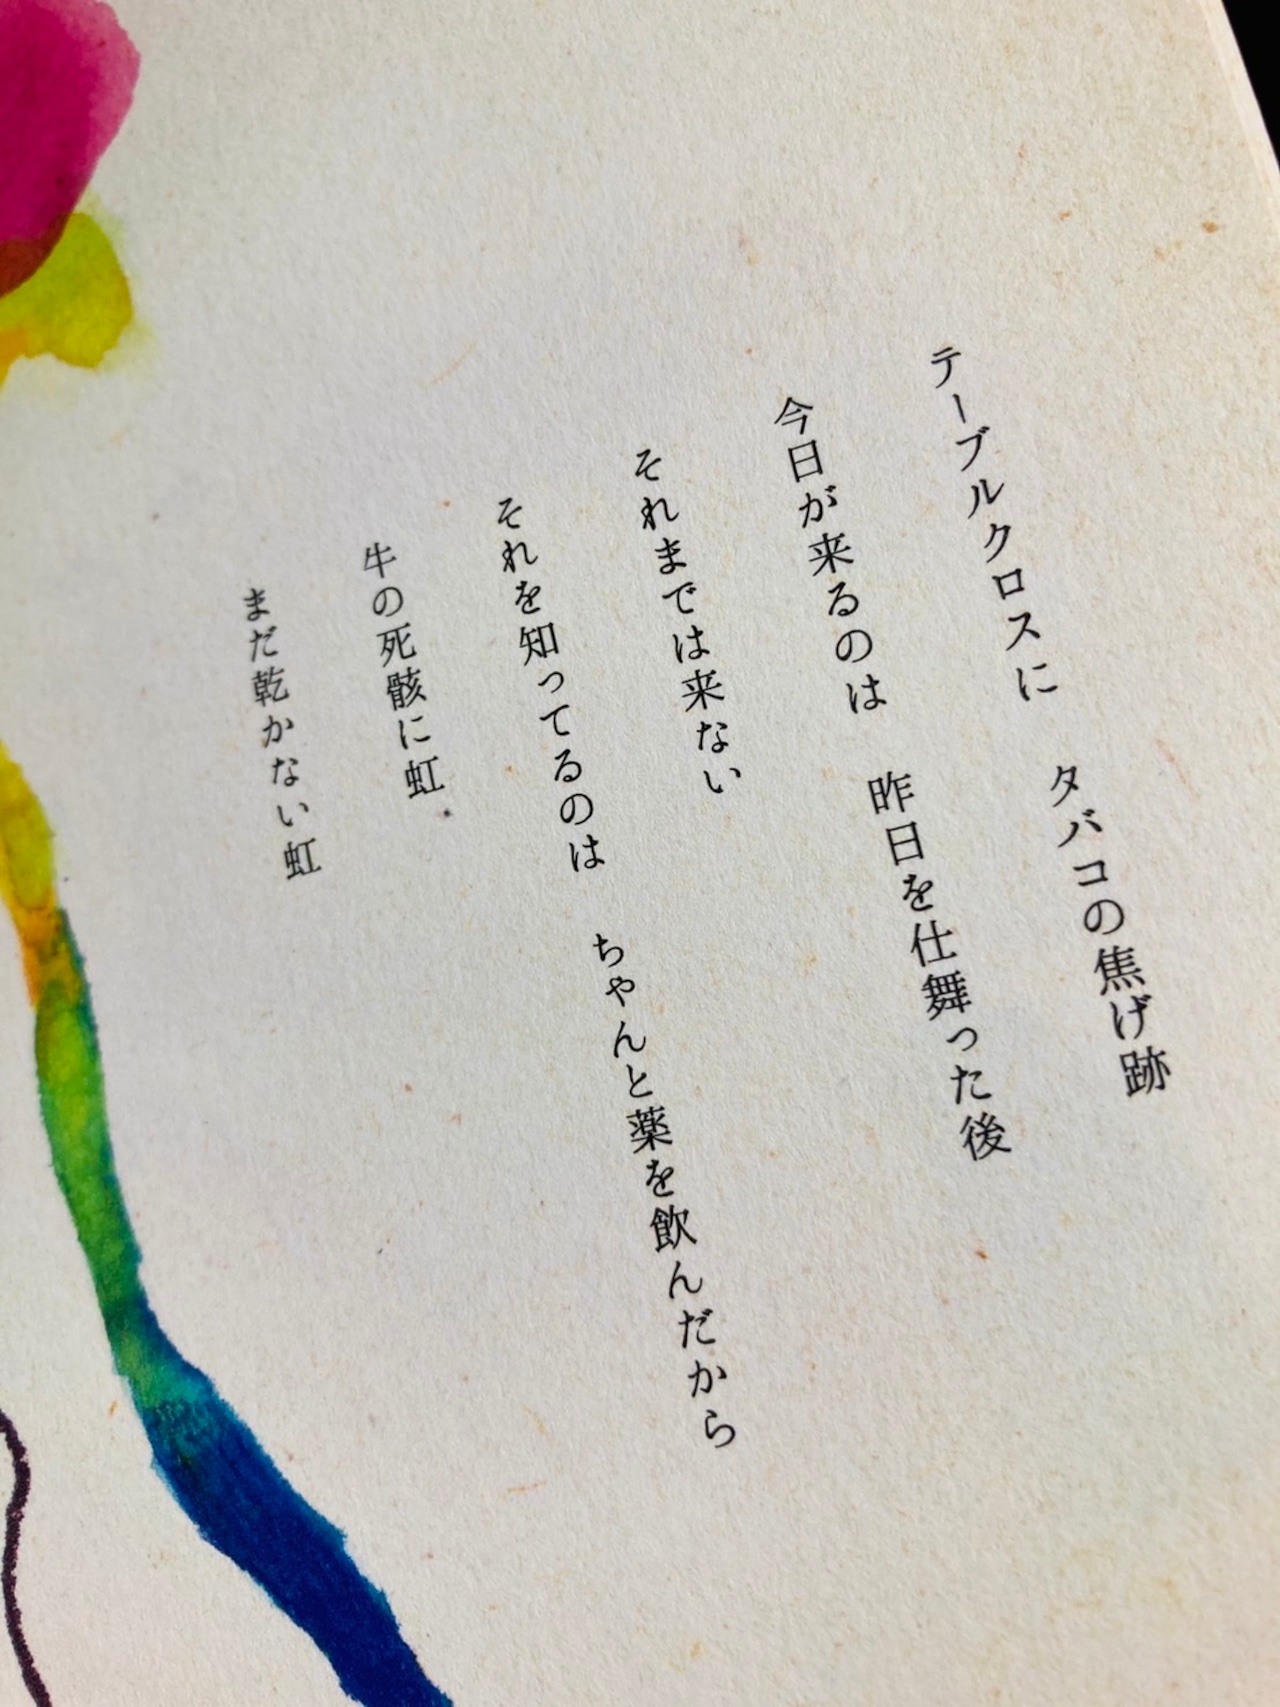 テーブルクロスに　タバコの焦げ跡
今日が来るのは　昨日を仕舞った後
それまでは来ない
それを知ってるのは　ちゃんと薬を飲んだから
牛の死骸に虹
まだ乾かない虹